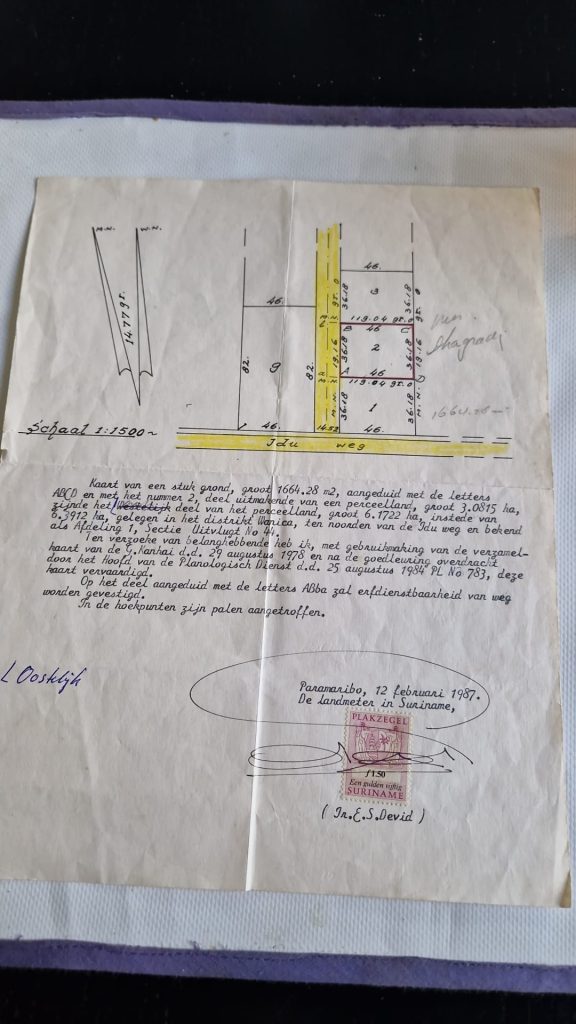 M.N.
W.N.
1477 gr.
Schaal 1:1500
82.
46.
9
46.
82.
14.52
46.
3
36.18
36.18
119.04 gr. 0
B
46
C
19.16
36.18
2
36.18
A
46
D
119.04 gr. 0
36.18
1
36.18
46.
1664.28
Idu weg
Kaart van een stuk grond, groot 1664.28 m2, aangeduid met de letters
ABCD en met het nummer 2, deel uitmakende van een perceelland, groot 3.0815 ha,
zijnde het Westelijk deel van het perceelland, groot 6.1722 ha, instede van
6.3912 ha, gelegen in het distrikt Wanica, ten noorden van de Idu weg en bekend
als Afdeling 1, Sectie Uitvlugt No 44.
Ten verzoeke van belanghebbende heb ik, met gebruikmaking van de verzamel-
kaart van de G.Kanhai d.d. 29 augustus 1978 en na de goedleuring overdracht
door het Hoofd van de Planologisch Dienst d.d. 25 augustus 1984 PL No 783, deze
kaart vervaardigd.
Op het deel aangeduid met de letters ABba zal erfdienstbaarheid van weg
worden gevestigd.
In de hoekpunten zijn palen aangetroffen.
L Oostelijk
Paramaribo, 12 februari 1987.
De Landmeter in Suriname,
PLAKZEGEL
ƒ1.50
Een gulden vijftig
SURINAME
( Ir.E.S.Devid )